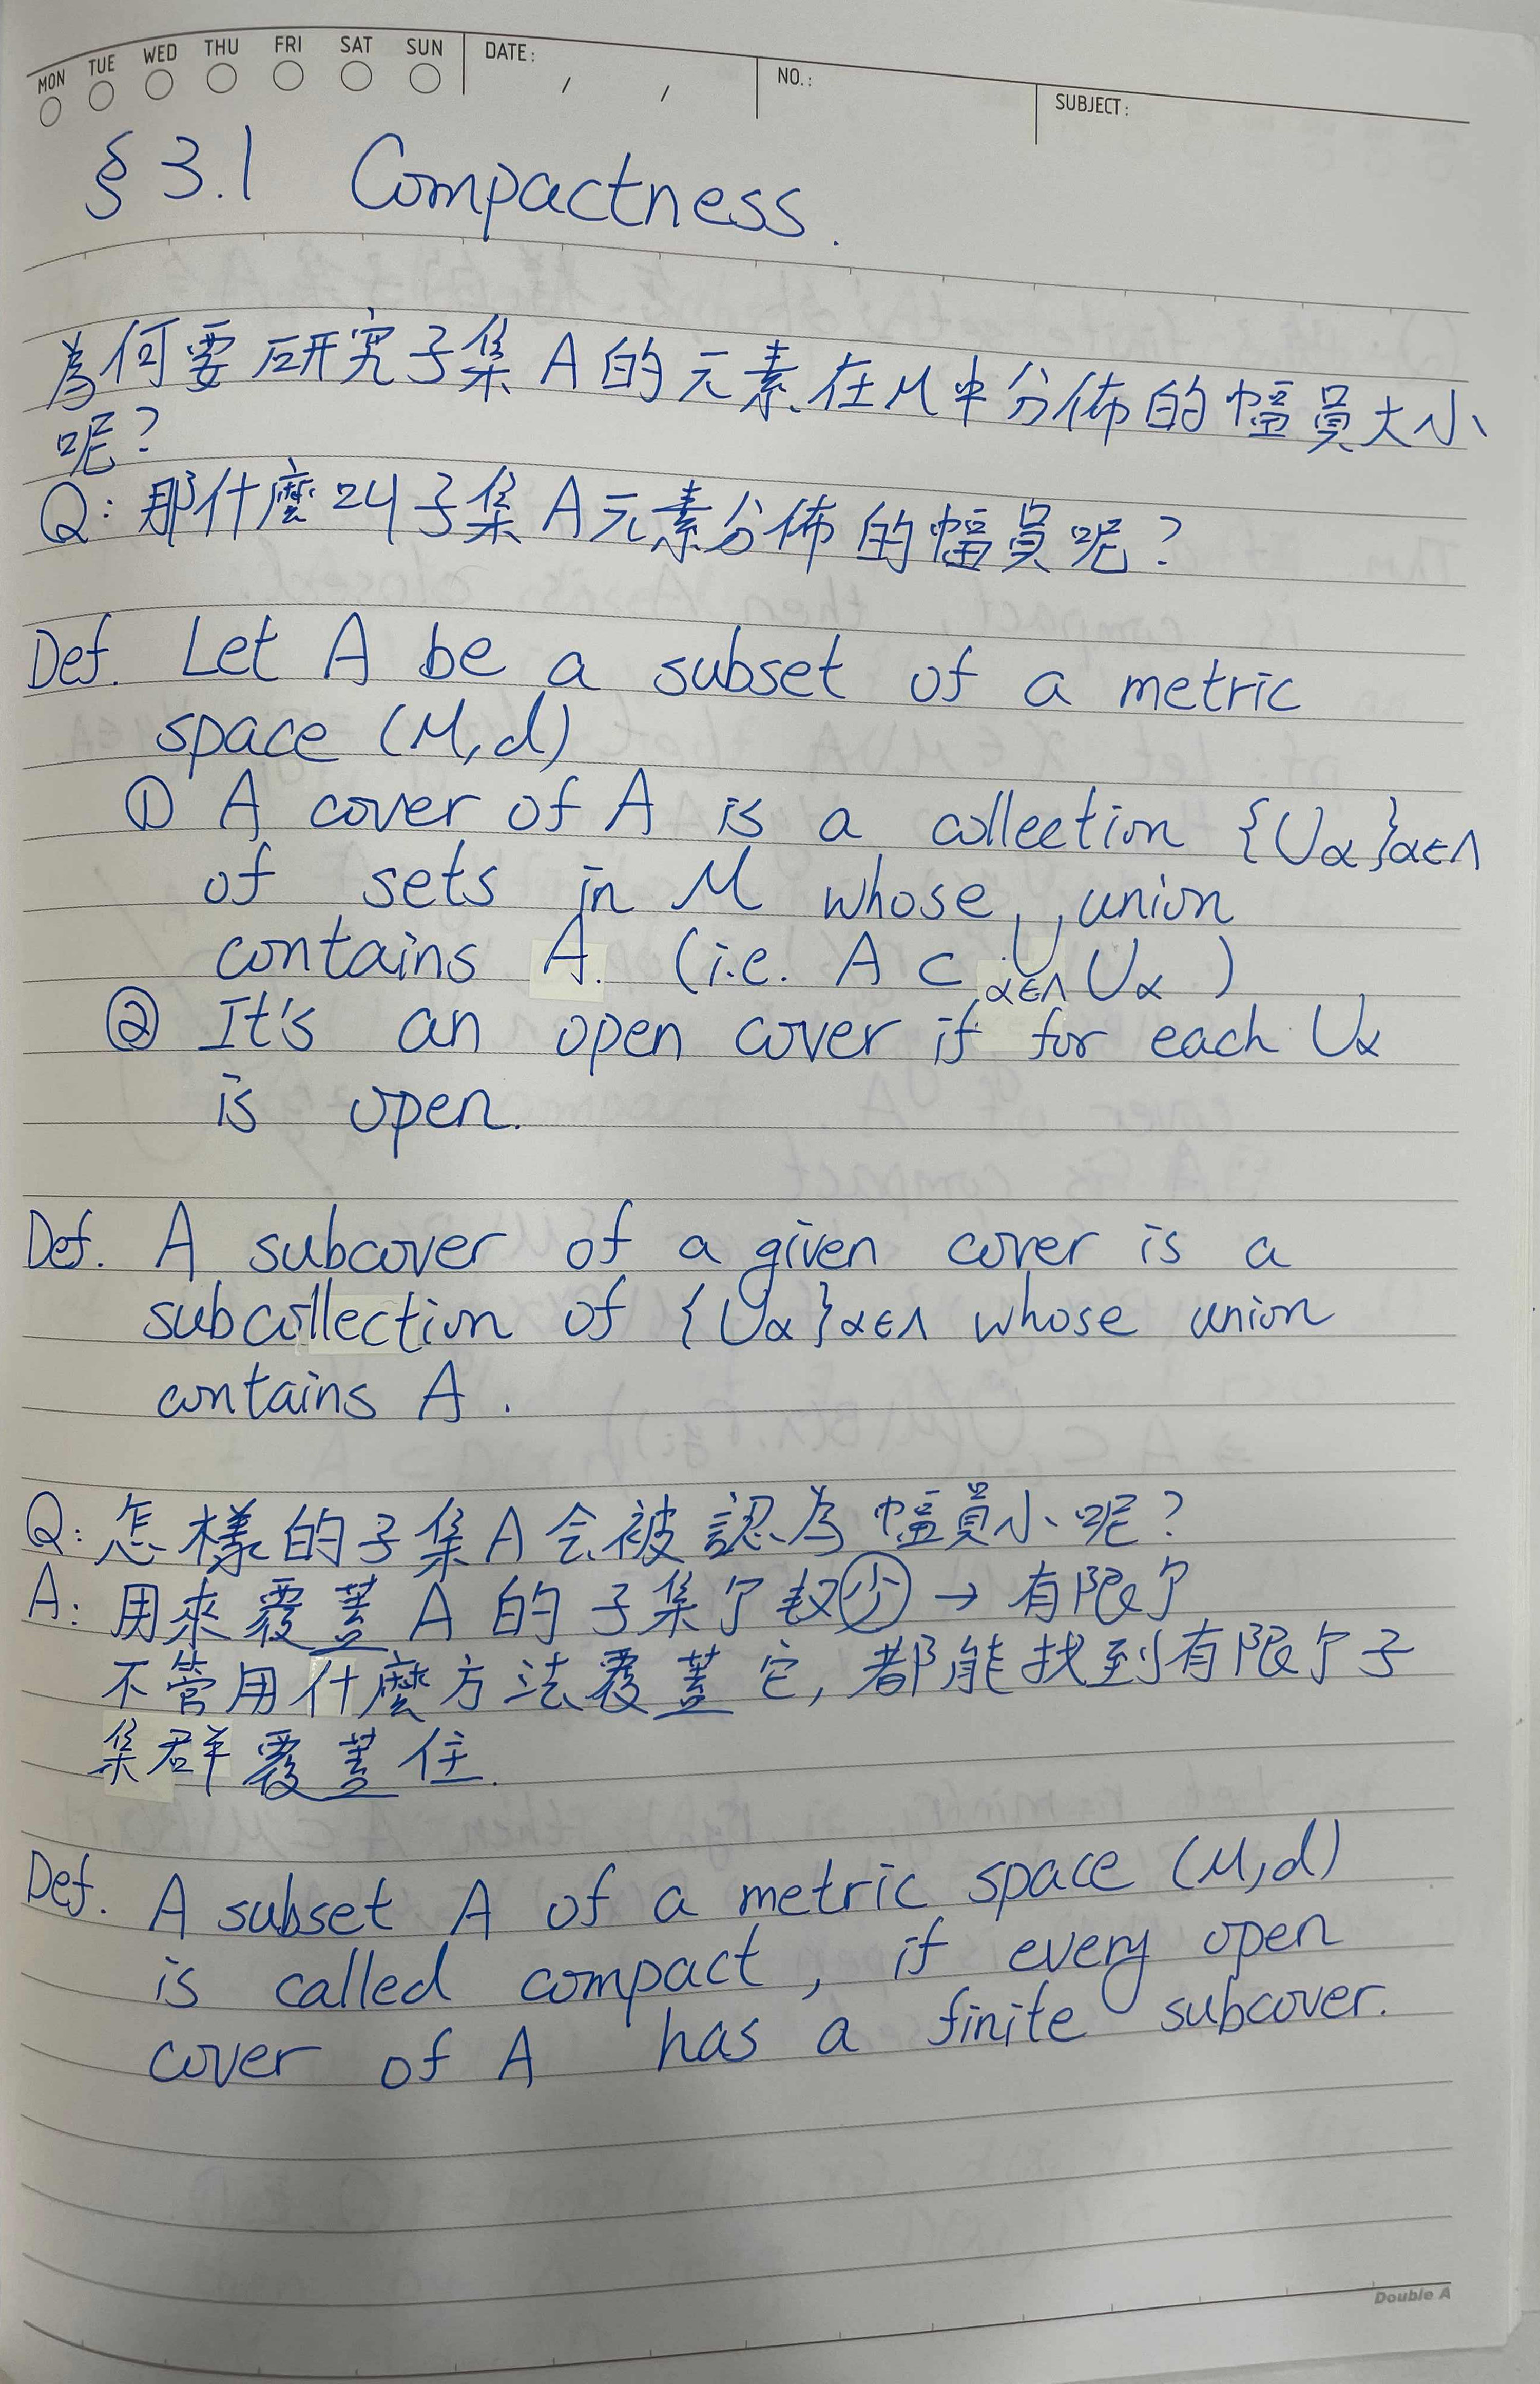 MON TUE WED THU FRI SAT SUN DATE: / / NO.: SUBJECT:
§ 3.1 Compactness.
為何要研究子集A的元素在M中分佈的幅員大小
呢?
Q: 那什麼叫子集A元素分佈的幅員呢?
Def. Let A be a subset of a metric
space (M,d)
① A cover of A is a collection {Uα}α∈Λ
of sets in M whose union
contains A. (i.e. A ⊂ ∪α∈Λ Uα )
② It's an open cover if for each Uα
is open.
Def. A subcover of a given cover is a
subcollection of {Uα}α∈Λ whose union
contains A.
Q: 怎樣的子集A会被認為幅員小呢?
A: 用來覆蓋A的子集个数少 → 有限个
不管用什麼方法覆蓋它, 都能找到有限个子
集群覆蓋住.
Def. A subset A of a metric space (M,d)
is called compact, if every open
cover of A has a finite subcover.
Double A